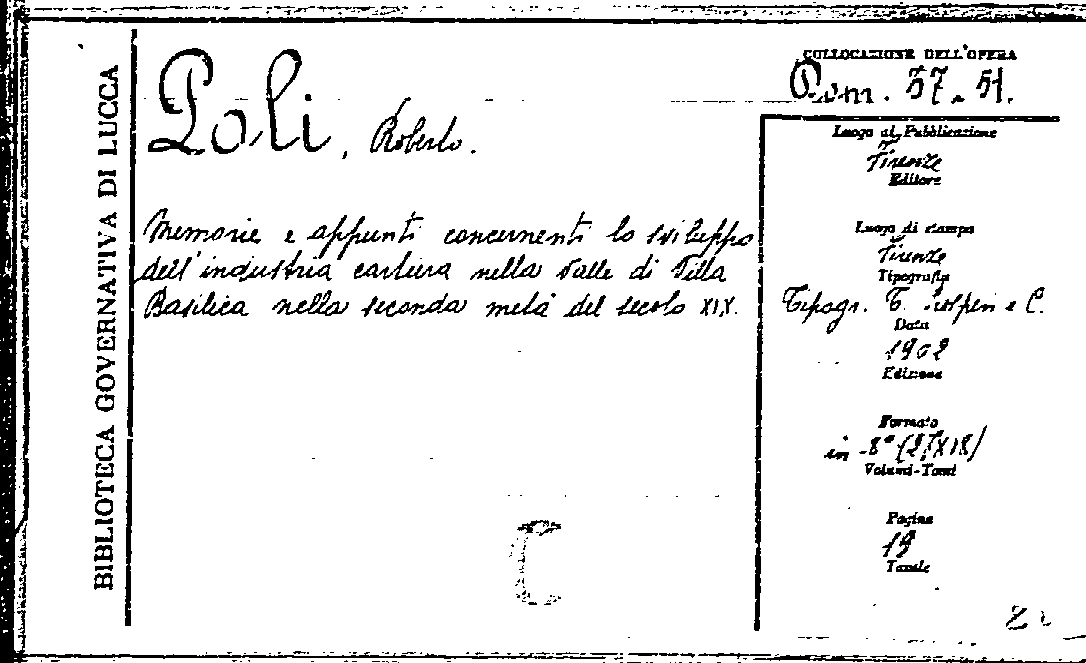 BIBLIOTECA GOVERNATIVA DI LUCCA
Poli, Roberto.
Memorie e appunti concernenti lo sviluppo
dell'industria cartiera nella Valle di Villa
Basilica nella seconda metà del secolo XIX.
C
COLLOCAZIONE DELL'OPERA
Dom. 37. 51.
Luogo di Pubblicazione
Firenze
Editore
Luogo di stampa
Firenze
Tipografia
Tipogr. e C.
Data
1902
Edizione
Formato
in -8° (27X18)
Volumi-Tomi
Pagine
19
Tavole